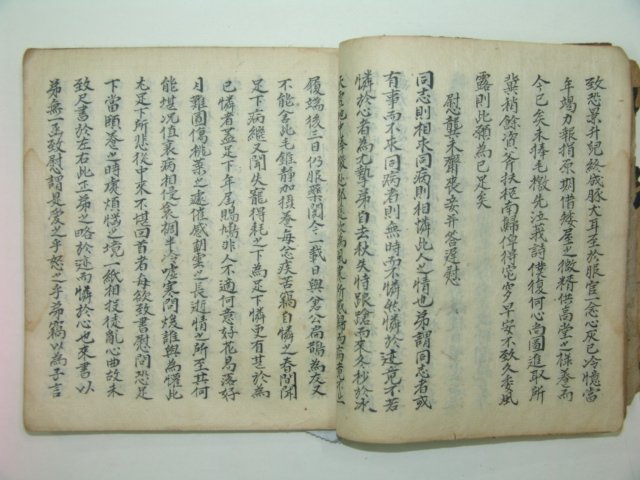 致悲景升兒終成豚大耳至於服官一念心灰已冷憶當
年竭力報捐原期借蝬屋之微精供高堂之祿養而
今已矣未捧毛檄先泣莪詩僕復何心尚圖進取所
冀稍餘資斧扶柩南歸俾得窀穸早安不致久委風
露則此願為已足矣
慰龔未齋喪妾并答遲慰
同志則相求同病則相憐此人之情也弟謂同志者或
有事而不求同病者則無時而不憐然憐於迹竟不若
憐於心者為尤摯弟自去秋失恃踉蹌而來冬杪於水
履端後三日仍服藥閱今一載日與倉公扁鵲為友又
不能舍此毛錐靜加攝養每念疾苦竊自憐之春間聞
足下病繼又聞失寵得耗之下為足下憐更有甚於為
已憐者蓋足下年尾賜鳩非人不適何意好花易落好
月難圓傷桃葉之遽催感朝雲之長逝情之所至其何
能堪况值衰病相侵衾裯半冷噓寒問煖誰與為懽此
充足下所悲從中來不堪回首者每欲致書慰問恐足
下當頤養之時虞煩惱之境一紙相投後亂心曲故未
致尺書於左右此正弟之略於迹而憐於心也來書以
弟無一函致慰謂是愛之乎恕之乎弟竊以為子言